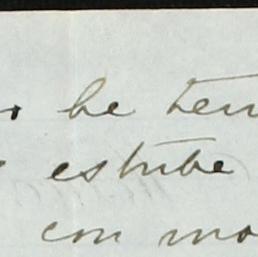 he ten
estube
con mo